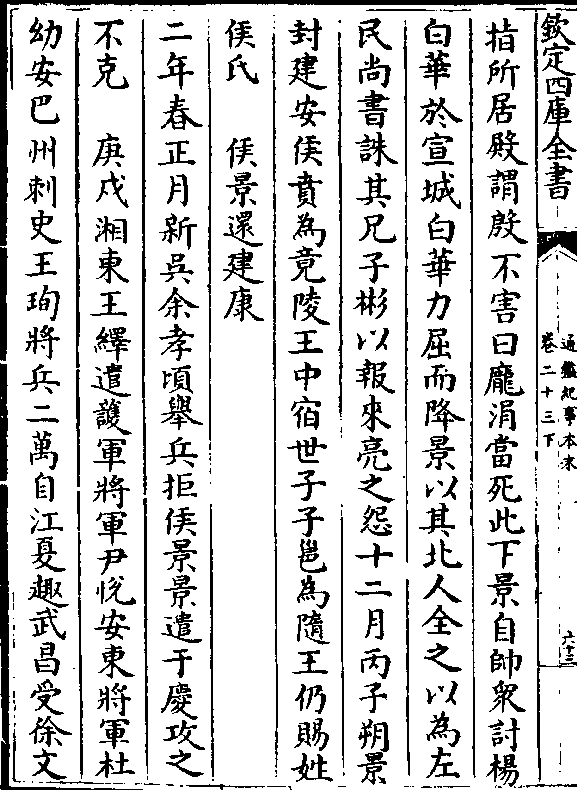 欽定四庫全書
通鑑紀事本末
卷二十三下
六十三
指所居殿謂殷不害曰龐涓當死此下景自帥衆討楊
白華於宣城白華力屈而降景以其北人全之以為左
民尚書誅其兄子彬以報來亮之怨十二月丙子朔景
封建安侯賁為竟陵王中宿世子子邕為隨王仍賜姓
侯氏　侯景還建康
二年春正月新吳余孝頃舉兵拒侯景景遣于慶攻之
不克　庚戌湘東王繹遣護軍將軍尹悅安東將軍杜
幼安巴州刺史王珣將兵二萬自江夏趣武昌受徐文